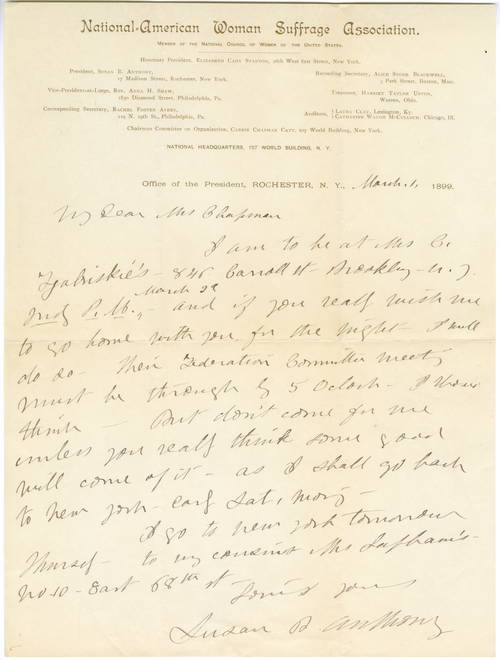 National-American Woman Suffrage Association.
MEMBER OF THE NATIONAL COUNCIL OF WOMEN OF THE UNITED STATES.
Honorary President, ELIZABETH CADY STANTON, 26 West 61st Street, New York.
President, SUSAN B. ANTHONY,
17 Madison Street, Rochester, New York.
Vice-President-at-Large, REV. ANNA H. SHAW,
1830 Diamond Street, Philadelphia, Pa.
Corresponding Secretary, RACHEL FOSTER AVERY,
119 N. 19th St., Philadelphia, Pa.
Recording Secretary, ALICE STONE BLACKWELL,
3 Park Street, Boston, Mass.
Treasurer, HARRIET TAYLOR UPTON,
Warren, Ohio.
Auditors, LAURA CLAY, Lexington, Ky.
CATHARINE WAUGH McCULLOCH, Chicago, Ill.
Chairman Committee on Organization, CARRIE CHAPMAN CATT, 107 World Building, New York.
NATIONAL HEADQUARTERS, 107 WORLD BUILDING, N. Y.
Office of the President, ROCHESTER, N. Y., March 1, 1899.
My Dear Mrs Chapman
I am to be at Mrs C.
848 Carroll st - Brooklyn - N. Y.
March 2d
P. M. - and if you really wish me
to go home with you for the night - I will
do so - Their Federation Committee meeting
must be through by 5 Oclock - I should
think - But don't come for me
unless you really think some good
will come of it - as I shall go back
to New York - early Sat, morg -
I go to New York tomorrow
Thursdy - to my cousins Mrs Lapham's -
No 10 - East 68th st
Yours
Susan B. Anthony